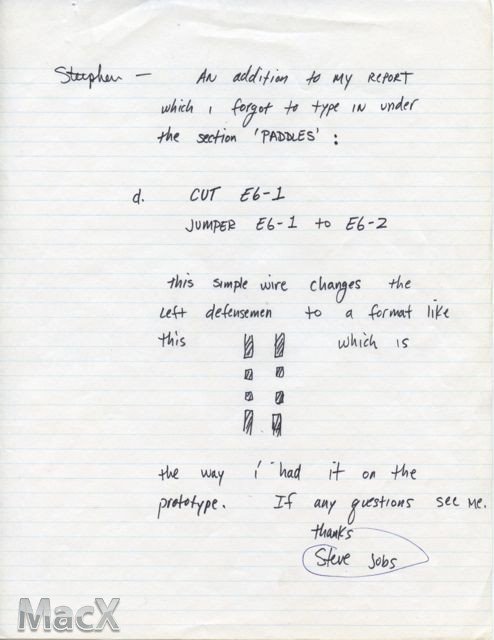 Stephen — An addition to my REPORT
which i forgot to type in under
the section 'PADDLES' :
d. CUT E6-1
JUMPER E6-1 to E6-2
this simple wire changes the
left defensemen to a format like
this which is
the way i had it on the
prototype. If any questions see me.
thanks
Steve Jobs
MacX